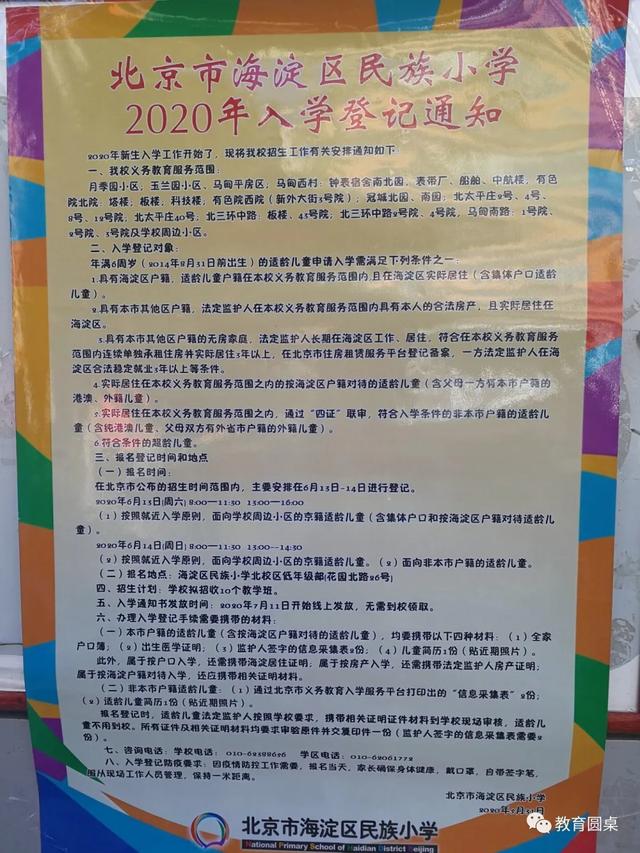 北京市海淀区民族小学
2020年入学登记通知
2020年新生入学工作开始了，现将我校招生工作有关安排通知如下：
一、我校义务教育服务范围：
月季园小区，玉兰园小区、马甸平房区，马甸西村：钟表宿舍南北园，表带厂、船舶、中航楼，有色
院北院：塔楼，板楼，科技楼，有色院西院（新外大街3号院）；冠城北园、南园；北太平庄2号、4号、
8号、12号院；北太平庄40号；北三环中路：板楼、43号院；北三环中路2号院、4号院，马甸南路：1号院、
2号院、3号院及学校周边小区。
二、入学登记对象：
年满6周岁（2014年8月31日前出生）的适龄儿童申请入学需满足下列条件之一：
1.具有海淀区户籍，适龄儿童户籍在本校义务教育服务范围内，且在海淀区实际居住（含集体户口适龄
儿童）。
2.具有本市其他区户籍，法定监护人在本校义务教育服务范围内具有本人的合法房产，且实际居住在
海淀区。
3.具有本市其他区户籍的无房家庭，法定监护人长期在海淀区工作、居住，符合在本校义务教育服务
范围内连续单独承租住房并实际居住3年以上，在北京市住房租赁服务平台登记备案，一方法定监护人在海
淀区合法稳定就业3年以上等条件。
4.实际居住在本校义务教育服务范围之内的按海淀区户籍对待的适龄儿童（含父母一方有本市户籍的
港澳、外籍儿童）。
5.实际居住在本校义务教育服务范围之内，通过“四证”联审，符合入学条件的非本市户籍的适龄儿
童（含纯港澳儿童、父母双方有外省市户籍的外籍儿童）。
6.符合条件的超龄儿童。
三、报名登记时间和地点
（一）报名时间：
在北京市公布的招生时间范围内，主要安排在6月13日-14日进行登记。
2020年6月13日[周六] 8:00—11:30 13:00—16:00
（1）按照就近入学原则，面向学校周边小区的京籍适龄儿童（含集体户口和按海淀区户籍对待适龄儿
童）。
2020年6月14日[周日] 8:00—11:30 13:00--14:30
（2）按照就近入学原则，面向学校周边小区的京籍适龄儿童。（2）面向非本市户籍的适龄儿童。
（二）报名地点：海淀区民族小学北校区低年级部[花园北路26号]
四、招生计划：学校拟招收10个教学班。
五、入学通知书发放时间：2020年7月11日开始线上发放，无需到校领取。
六、办理入学登记手续需要携带的材料：
（一）本市户籍的适龄儿童（含按海淀区户籍对待的适龄儿童），均要携带以下四种材料：（1）全家
户口簿；（2）出生医学证明；（3）监护人签字的信息采集表2份；（4）儿童简历1份（贴近期照片）。
此外，属于按户口入学，还需携带海淀居住证明；属于按房产入学，还需携带法定监护人房产证明；
属于按海淀户籍对待入学，还应携带相关证明材料。
（二）非本市户籍适龄儿童：（1）通过北京市义务教育入学服务平台打印出的“信息采集表”2份；
（2）适龄儿童简历1份（贴近期照片）。
报名登记时，适龄儿童法定监护人按照学校要求，携带相关证明证件材料到学校现场审核，适龄儿
童不用到校。所有证件及相关证明材料均要求审验原件并交复印件一份（监护人签字的信息采集表需要2
份）。
七、咨询电话：学校电话： 010-62388626 学区电话：010-62061772
八、入学登记防疫要求：因疫情防控工作需要，报名当天，家长确保身体健康，戴口罩，自带签字笔，
服从现场工作人员管理，保持一米距离。
北京市海淀区民族小学
2020年5月31日
北京市海淀区民族小学
National Primary School of Haidian District Beijing
教育圆桌